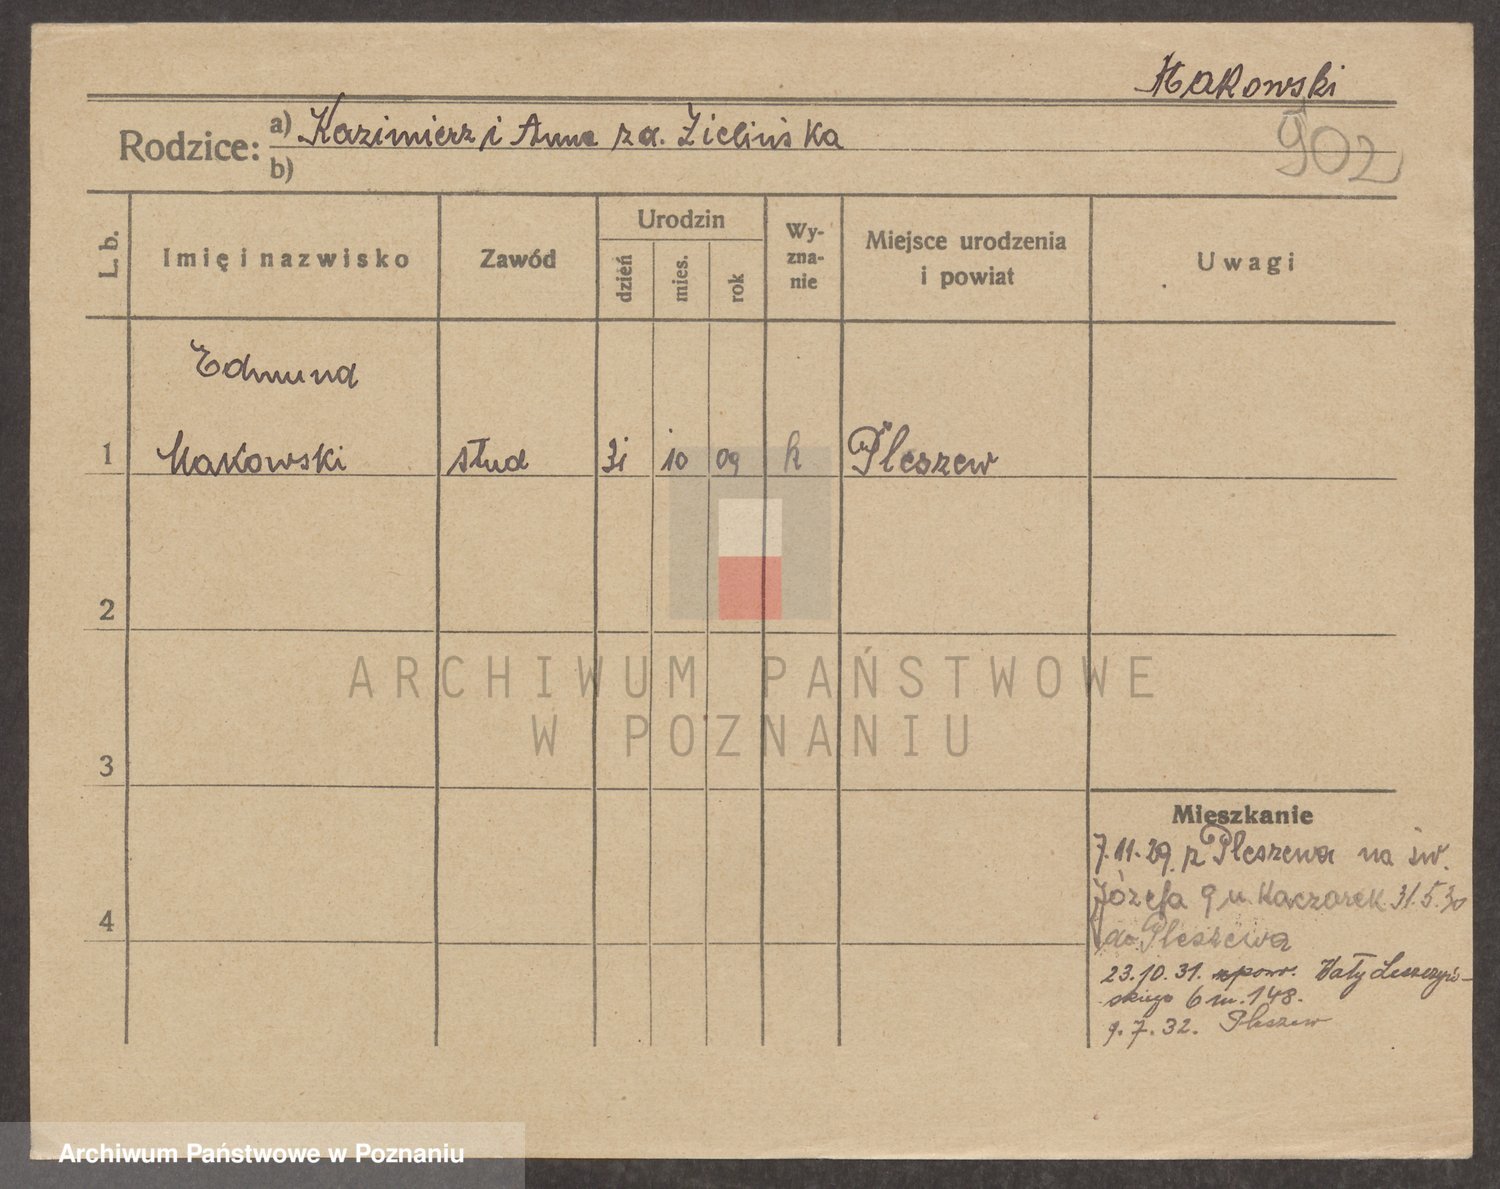 Makowski
902
Rodzice: a) Kazimierz i Anna za. Zielińska
b)
L. b.
Imię i nazwisko
Zawód
Urodzin
dzień
mies.
rok
Wy-
zna-
nie
Miejsce urodzenia
i powiat
Uwagi
Edmund
1 Makowski stud 31 10 09 k Pleszew
2
3
4
Mieszkanie
7.11.29. z Pleszewa na św.
Józefa 9 u. Kaczorek 31.5.30
do Pleszewa
23.10.31. z pow. Wały Leszczyń-
skiego 6 m. 148.
9.7.32. Pleszew
ARCHIWUM PAŃSTWOWE
W POZNANIU
Archiwum Państwowe w Poznaniu